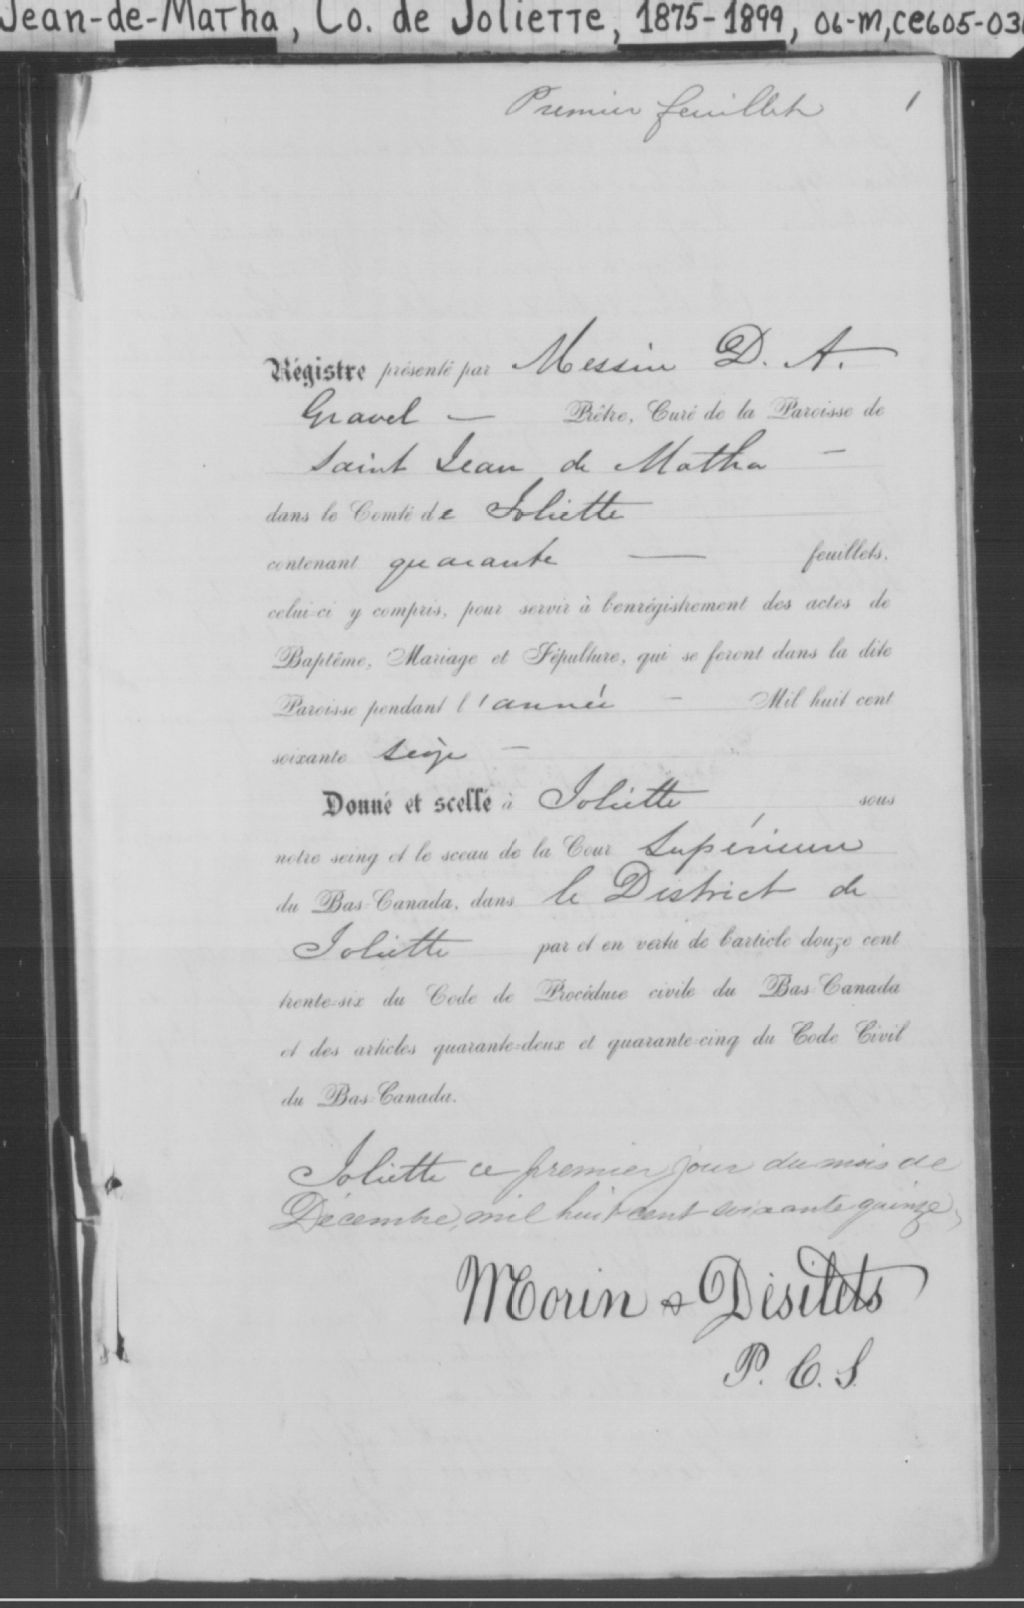 Jean-de-Matha, Co. de Joliette, 1875-1899, 06-M,CE605-03
Premier feuillet 1
Régistre présenté par Messire D. A.
Gravel — Prêtre, Curé de la Paroisse de
Saint Jean de Matha —
dans le Comté de Joliette
contenant quarante — feuillets,
celui-ci y compris, pour servir à l'enrégistrement des actes de
Baptême, Mariage et Sépulture, qui se feront dans la dite
Paroisse pendant l'année — Mil huit cent
soixante seize —
Donné et scellé à Joliette, sous
notre seing et le sceau de la Cour Supérieure
du Bas-Canada, dans le District de
Joliette par et en vertu de l'article douze cent
trente-six du Code de Procédure civile du Bas-Canada
et des articles quarante-deux et quarante-cinq du Code Civil
du Bas-Canada.
Joliette ce premier jour du mois de
Décembre, mil huit cent soixante quinze,
Morin & Désilets
P. C. S.